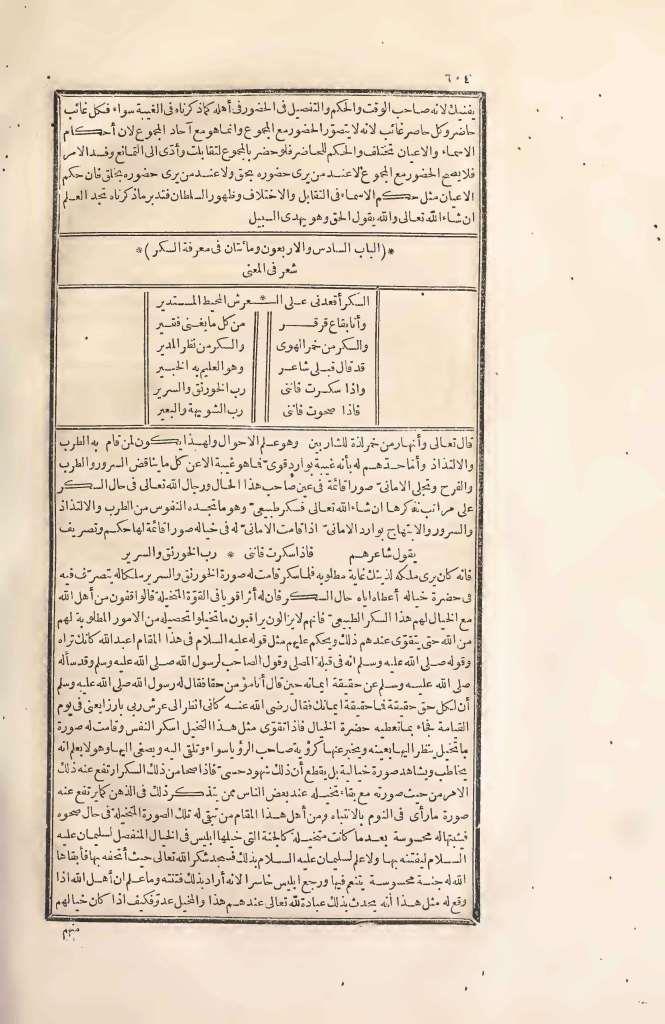 ٦٠٤
يغنيك لانه صاحب الوقت والحكم والتفصيل فى الحضور فى أهله كما ذكرناه فى الغيبة سواء فكل غائب
حاضر وكل حاضر غائب لانه لا يتصوّر الحضور مع المجموع وانما هو مع آحاد المجموع لان أحكام
الاسماء والاعيان تختلف والحكم للحاضر فلو حضر بالمجموع لتقابلت وأدّى الى التمانع وفسد الامر
فلا يصح الحضور مع المجموع لا عند من يرى حضوره بحق ولا عند من يرى حضوره بخلق فان حكم
الاعيان مثل حكم الاسماء فى التقابل والاختلاف وظهور السلطان فتدبر ما ذكرناه تجد العلم
ان شاء الله تعالى والله يقول الحق وهو يهدى السبيل
*(الباب السادس والاربعون ومائتان فى معرفة السكر)*
شعر فى المعنى
السكر أقعدنى على الـ * ـعرش المحيط المستدير
وأنا بقاع قرقر من كل ما يغنى فقير
والسكر من خمر الهوى والسكر من نظر المدير
قد قال قبلى شاعر وهو العليم به الخبير
واذا سكرت فاننى رب الخورنق والسرير
فاذا صحوت فاننى رب الشويهة والبعير
قال تعالى وأنهار من خمر لذة للشاربين وهو علم الاحوال ولهذا يكون لمن قام به الطرب
والالتذاذ وأما حدّهم له بأنه غيبة بوارد قوىّ فما هو غيبة الا عن كل ما يناقض السرور والطرب
والفرح وتجلى الامانى صورا قائمة فى عين صاحب هذا الحال ورجال الله تعالى فى حال السكر
على مراتب نذكرها ان شاء الله تعالى فسكر طبيعى وهو ما تجده النفوس من الطرب والالتذاذ
والسرور والابتهاج بوارد الامانى اذا قامت الامانى له فى خياله صورا قائمة لها حكم وتصريف
يقول شاعرهم فاذا سكرت فاننى * رب الخورنق والسرير
فانه كان يرى ملكه لذينك غاية مطلوبه فلما سكر قامت له صورة الخورنق والسرير ملكا له يتصرّف فيه
فى حضرة خياله أعطاه اياه حال السكر فان له أثرا قويا فى القوّة المتخيلة فالواقفون من أهل الله
مع الخيال لهم هذا السكر الطبيعى فانهم لا يزالون يراقبون ما تخيلوا تحصيله من الامور المطلوبة لهم
من الله حتى يتقوّى عندهم ذلك ويحكم عليهم مثل قوله عليه السلام فى هذا المقام اعبد الله كانك تراه
وقوله صلى الله عليه وسلم انه فى قبلة المصلى وقول الصاحب لرسول الله صلى الله عليه وسلم وقد سأله
صلى الله عليه وسلم عن حقيقة ايمانه حين قال أنا مؤمن حقا فقال له رسول الله صلى الله عليه وسلم
أن لكل حق حقيقة فما حقيقة ايمانك فقال رضى الله عنه كانى انظر الى عرش ربى بارزا يعنى فى يوم
القيامة فجاء بما تعطيه حضرة الخيال فاذا تقوى مثل هذا التخيل اسكر النفس وقامت له صورة
ما تخيل ينظر اليها بعينه ويخبر عنها كرؤية صاحب الرؤيا سواء وتلقى اليه ويصغى اليها وهو لا يعلم انه
يخاطب ويشاهد صورة خيالية بل يقطع أن ذلك شهود حسىّ فاذا صحا من ذلك السكر ارتفع عنه ذلك
الامر من حيث صورته مع بقاء تخيله عند بعض الناس ممن يتذكر ذلك فى الذهن كما يرتفع عنه
صورة ما رأى فى النوم بالانتباه ومن أهل هذا المقام من تبقى له تلك الصورة المتخيلة فى حال صحوه
فيثبتها له محسوسة بعد ما كانت متخيلة كالجنة التى خيلها ابليس فى الخيال المنفصل لسليمان عليه
السلام ليفتنه بها ولا علم لسليمان عليه السلام بذلك فسجد شكر الله تعالى حيث أتحفه بها فأبقاها
الله له جنة محسوسة يتنعم فيها ورجع ابليس خاسرا لانه أراد بذلك فتنته وما علم ان أهل الله اذا
وقع له مثل هذا أنه يحدث بذلك عبادة لله تعالى عندهم هذا والمخيل عدوّ فكيف اذا كان خيالهم
منهم